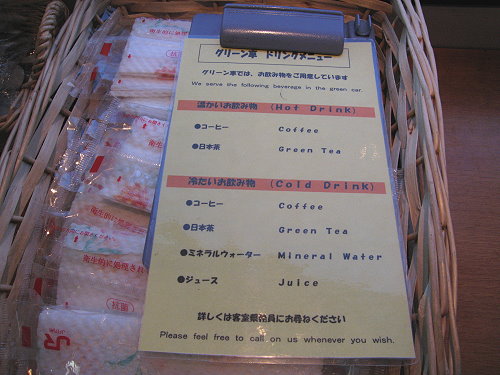 グリーン車 ドリンクメニュー
グリーン車では、お飲み物をご用意しています
We serve the following beverage in the green car.
温かいお飲み物 (Hot Drink)
●コーヒー Coffee
●日本茶 Green Tea
冷たいお飲み物 (Cold Drink)
●コーヒー Coffee
●日本茶 Green Tea
●ミネラルウォーター Mineral Water
●ジュース Juice
詳しくは客室乗務員にお尋ねください
Please feel free to call on us whenever you wish.
抗菌
衛生的に処理され
抗菌
JR